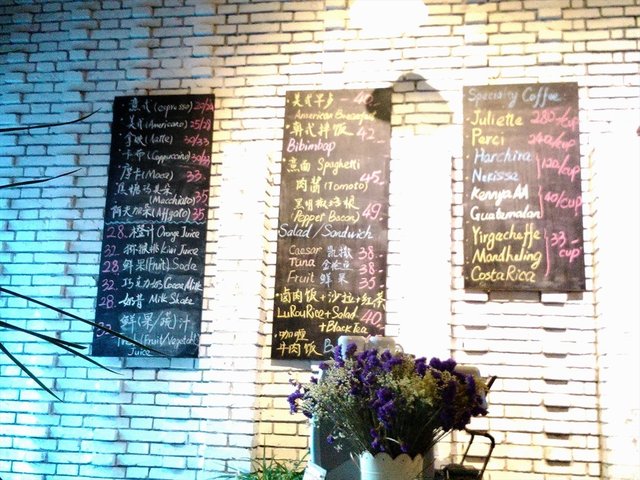 (espresso)
美式(Americano) 25/28
拿铁(Latte) 30/33
(Cappuccino) 30/33
摩卡(Moca) 33.
焦糖玛其朵
(Macchiato) 35
(Affogato) 35
28. 橙汁 Orange Juice
32. Kiwi Juice
28 鲜果(Fruit) Soda
32. 巧克力奶 Cocoa Milk
28. 奶昔 Milk Shake
鲜(果/蔬)汁
(Fruit/Vegetable)
Juice
·美式早步 - 40
American Breakfast
·韩式拌饭 - 42
Bibimbap
·意面 Spaghetti
肉酱(Tomoto) 45-
黑胡椒培根
(Pepper Bacon) 49-
Salad/Sandwich
Caesar 凯撒 38-
Tuna 金枪鱼 38-
Fruit 鲜果 35
·卤肉饭+沙拉+红茶
LuRouRice+Salad 40
+BlackTea
·咖喱
牛肉饭
Specialty Coffee
·Juliette 280-/cup
·Perci 240/cup
·Harchira 120/cup
·Nekisse
·KennyaAA 40/cup
·Guatemalan
·Yirgacheffe 33-/cup
·Mandheling
·CostaRica